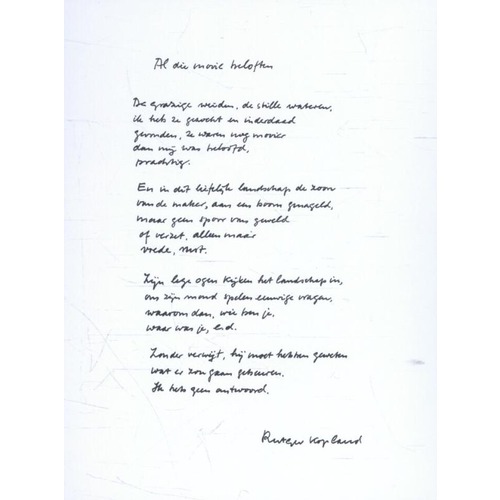 Al die mooie beloften
De grazige weiden, de stille wateren,
ik heb ze gezocht en inderdaad
gevonden, ze waren nog mooier
dan mij was beloofd,
prachtig.
En in dit liefelijk landschap de zoon
van de maker, aan een boom genageld,
maar geen spoor van geweld
of verzet, alleen maar
vrede, rust.
Zijn lege ogen kijken het landschap in,
om zijn mond spelen eeuwige vragen,
waarom dan, wie ben je,
waar was je, e.d.
Zonder verwijt, hij moet hebben geweten
wat er zou gaan gebeuren.
Ik heb geen antwoord.
Rutger Kopland